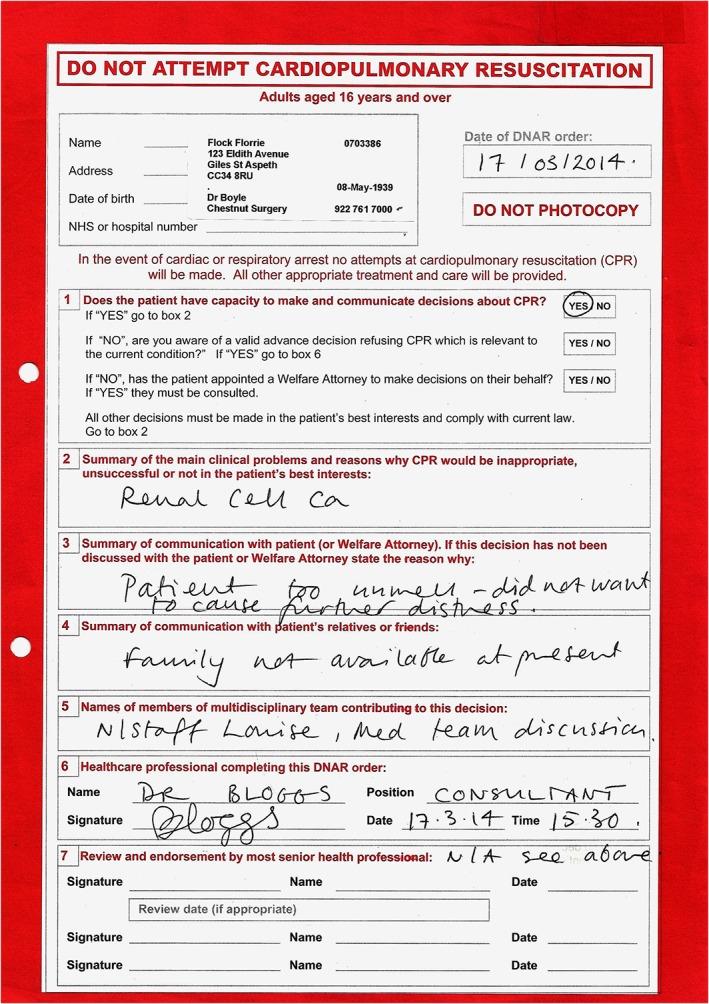 DO NOT ATTEMPT CARDIOPULMONARY RESUSCITATION
Adults aged 16 years and over
Name
Address
Date of birth
NHS or hospital number
Flock Florrie 0703386
123 Eldith Avenue
Giles St Aspeth
CC34 8RU
08-May-1939
Dr Boyle
Chestnut Surgery 922 761 7000
Date of DNAR order:
17 / 03/2014.
DO NOT PHOTOCOPY
In the event of cardiac or respiratory arrest no attempts at cardiopulmonary resuscitation (CPR)
will be made. All other appropriate treatment and care will be provided.
1 Does the patient have capacity to make and communicate decisions about CPR? YES / NO
If "YES" go to box 2
If "NO", are you aware of a valid advance decision refusing CPR which is relevant to YES / NO
the current condition?" If "YES" go to box 6
If "NO", has the patient appointed a Welfare Attorney to make decisions on their behalf? YES / NO
If "YES" they must be consulted.
All other decisions must be made in the patient's best interests and comply with current law.
Go to box 2
2 Summary of the main clinical problems and reasons why CPR would be inappropriate,
unsuccessful or not in the patient's best interests:
Renal Cell Ca
3 Summary of communication with patient (or Welfare Attorney). If this decision has not been
discussed with the patient or Welfare Attorney state the reason why:
Patient too unwell - did not want
to cause further distress.
4 Summary of communication with patient's relatives or friends:
Family not available at present
5 Names of members of multidisciplinary team contributing to this decision:
N/Staff Louise, Med team discussion.
6 Healthcare professional completing this DNAR order:
Name DR BLOGGS Position CONSULTANT
Signature Bloggs Date 17.3.14 Time 15.30.
7 Review and endorsement by most senior health professional: N/A see above
Signature Name Date
Review date (if appropriate)
Signature Name Date
Signature Name Date